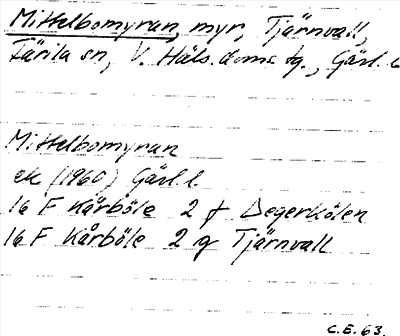 Mittelbomyran, myr, Tjärnvall,
Färila sn, V. Häls. doms tg., Gävl. l
Mittelbomyran
ek (1960) Gävl. l.
16 F Kårböle 2 f Degerkölen
16 F Kårböle 2 g Tjärnvall
C.E. 63.